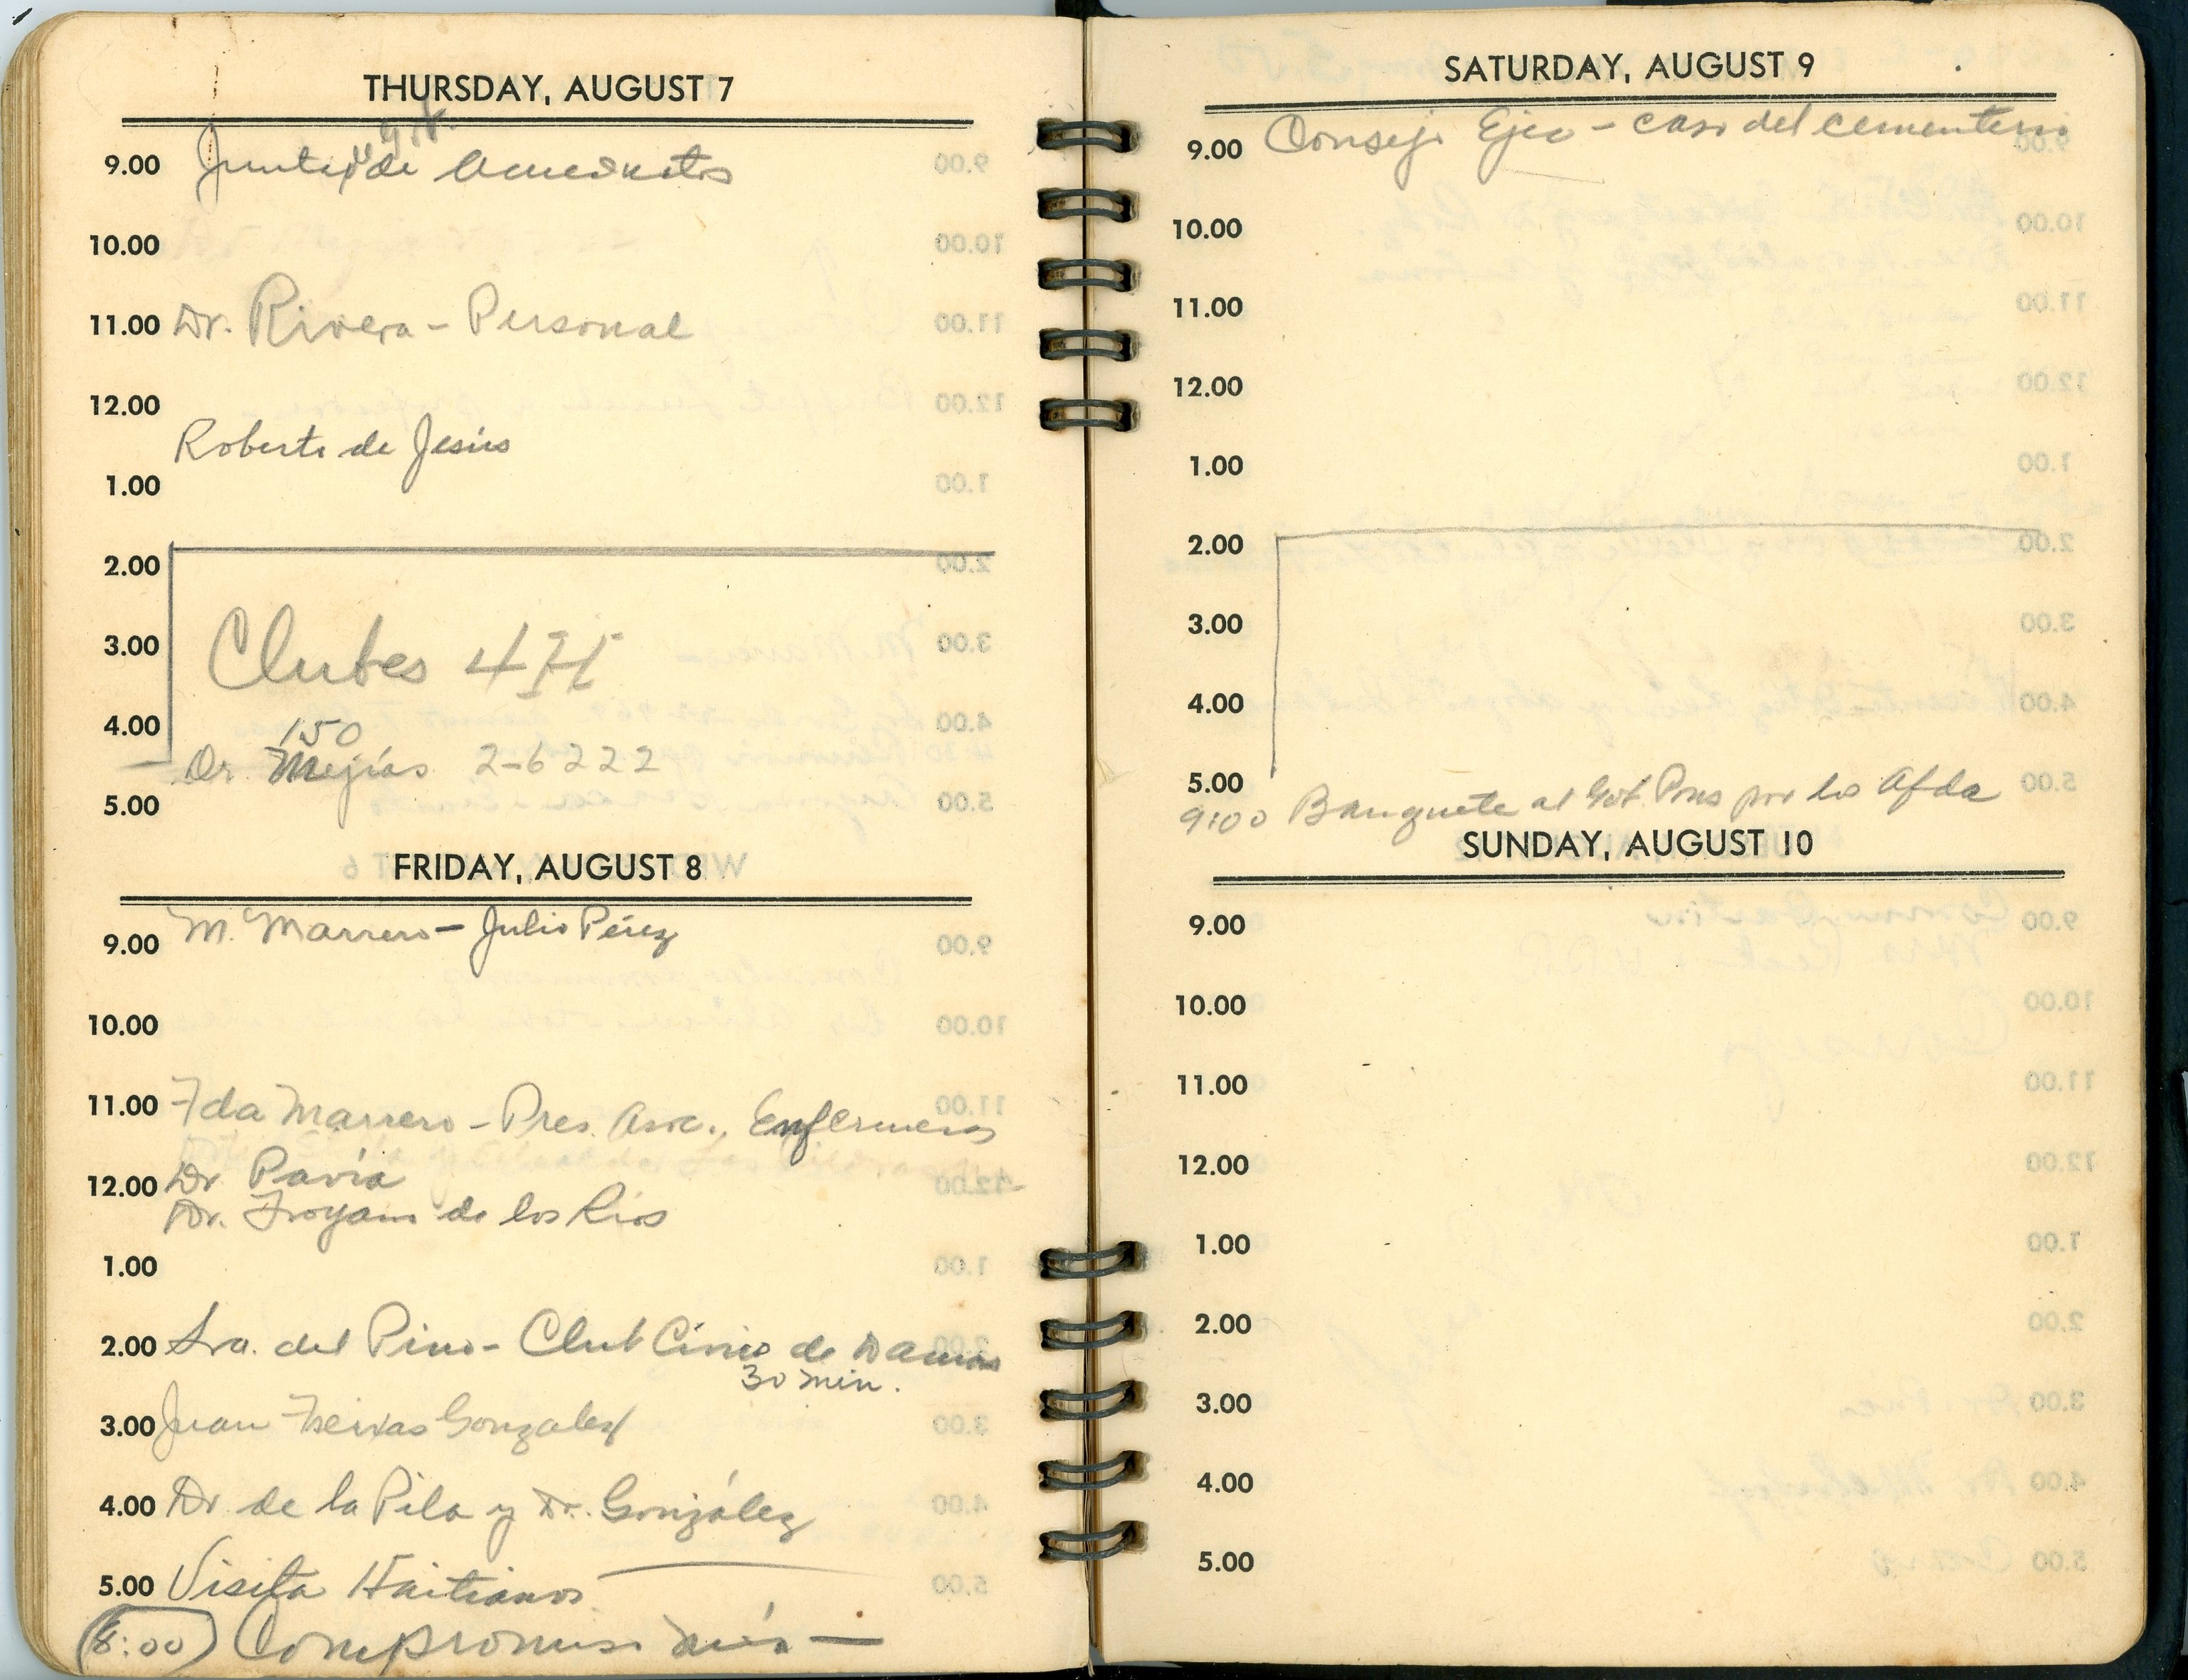 THURSDAY, AUGUST 7
9.00 Junta de Acueductos
10.00
11.00 Dr. Rivera - Personal
12.00
Roberto de Jesús
1.00
2.00
3.00 Clubes 4H
4.00
150
Dr. Mejías 2-6222
5.00
FRIDAY, AUGUST 8
9.00 M. Marrero - Julio Pérez
10.00
11.00 Ida Marrero - Pres. Asoc. Enfermeras
Dr Pavía
12.00
Dr. Troyano de los Ríos
1.00
2.00 Sra. del Pino - Club Cívico de Damas
30 min.
3.00 Juan Gonzalez
4.00 Dr. de la Pila y Dr. González
5.00 Visita Haitianos
8:00 Compromiso mío —
SATURDAY, AUGUST 9
9.00 Consejo Ejec - caso del cementerio
10.00
11.00
12.00
1.00
2.00
3.00
4.00
5.00
9:00 Banquete al Gob. Pons por los Afda
SUNDAY, AUGUST 10
9.00
10.00
11.00
12.00
1.00
2.00
3.00
4.00
5.00